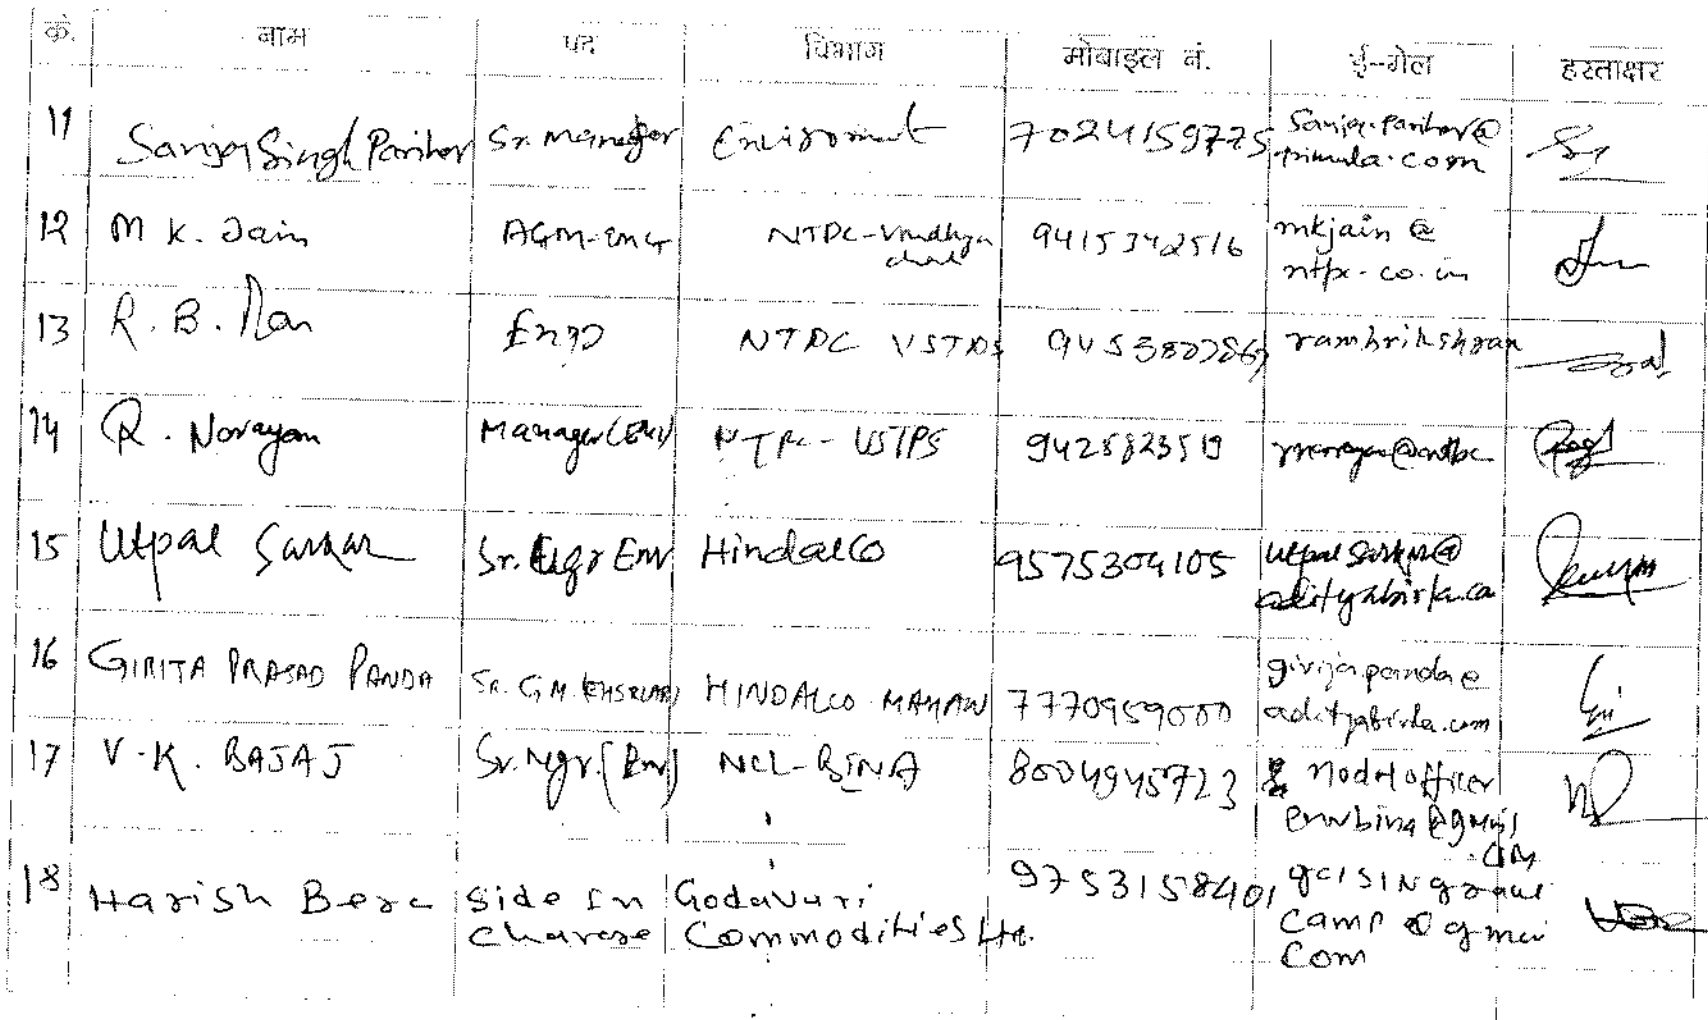 क्रं. नाम पद विभाग मोबाइल नं. ई-मेल हस्ताक्षर
11 Sanjay Singh Parihar Sr. Manager Enviroment 7024159775 Sanjay.parihar@
.com
12 M K. Jain AGM-EMG NTPC-Vindhya 9415342516 mkjain @
chal ntpc.co.in
13 R. B. Ram Engg NTPC VSTPS rambrikshram
14 R. Narayan Manager(Env) NTPC-VSTPS 9425823519
15 Utpal Sarkar Sr. Engr Env Hindalco 9575304105 utpal.sarkar@
adityabirla.co
16 GIRIJA PRASAD PANDA Sr. G.M. HINDALCO MAHAN 7770959000 girija.panda@
adityabirla.com
17 V.K. BAJAJ Sr. Mgr. (Env) NCL-BINA 8004945723 nodalofficer
envbina@gmail
.com
18 Harish Bere side In Godavari 9753158401 gclsingraul
charge Commodities Ltd. camp@gmai
com